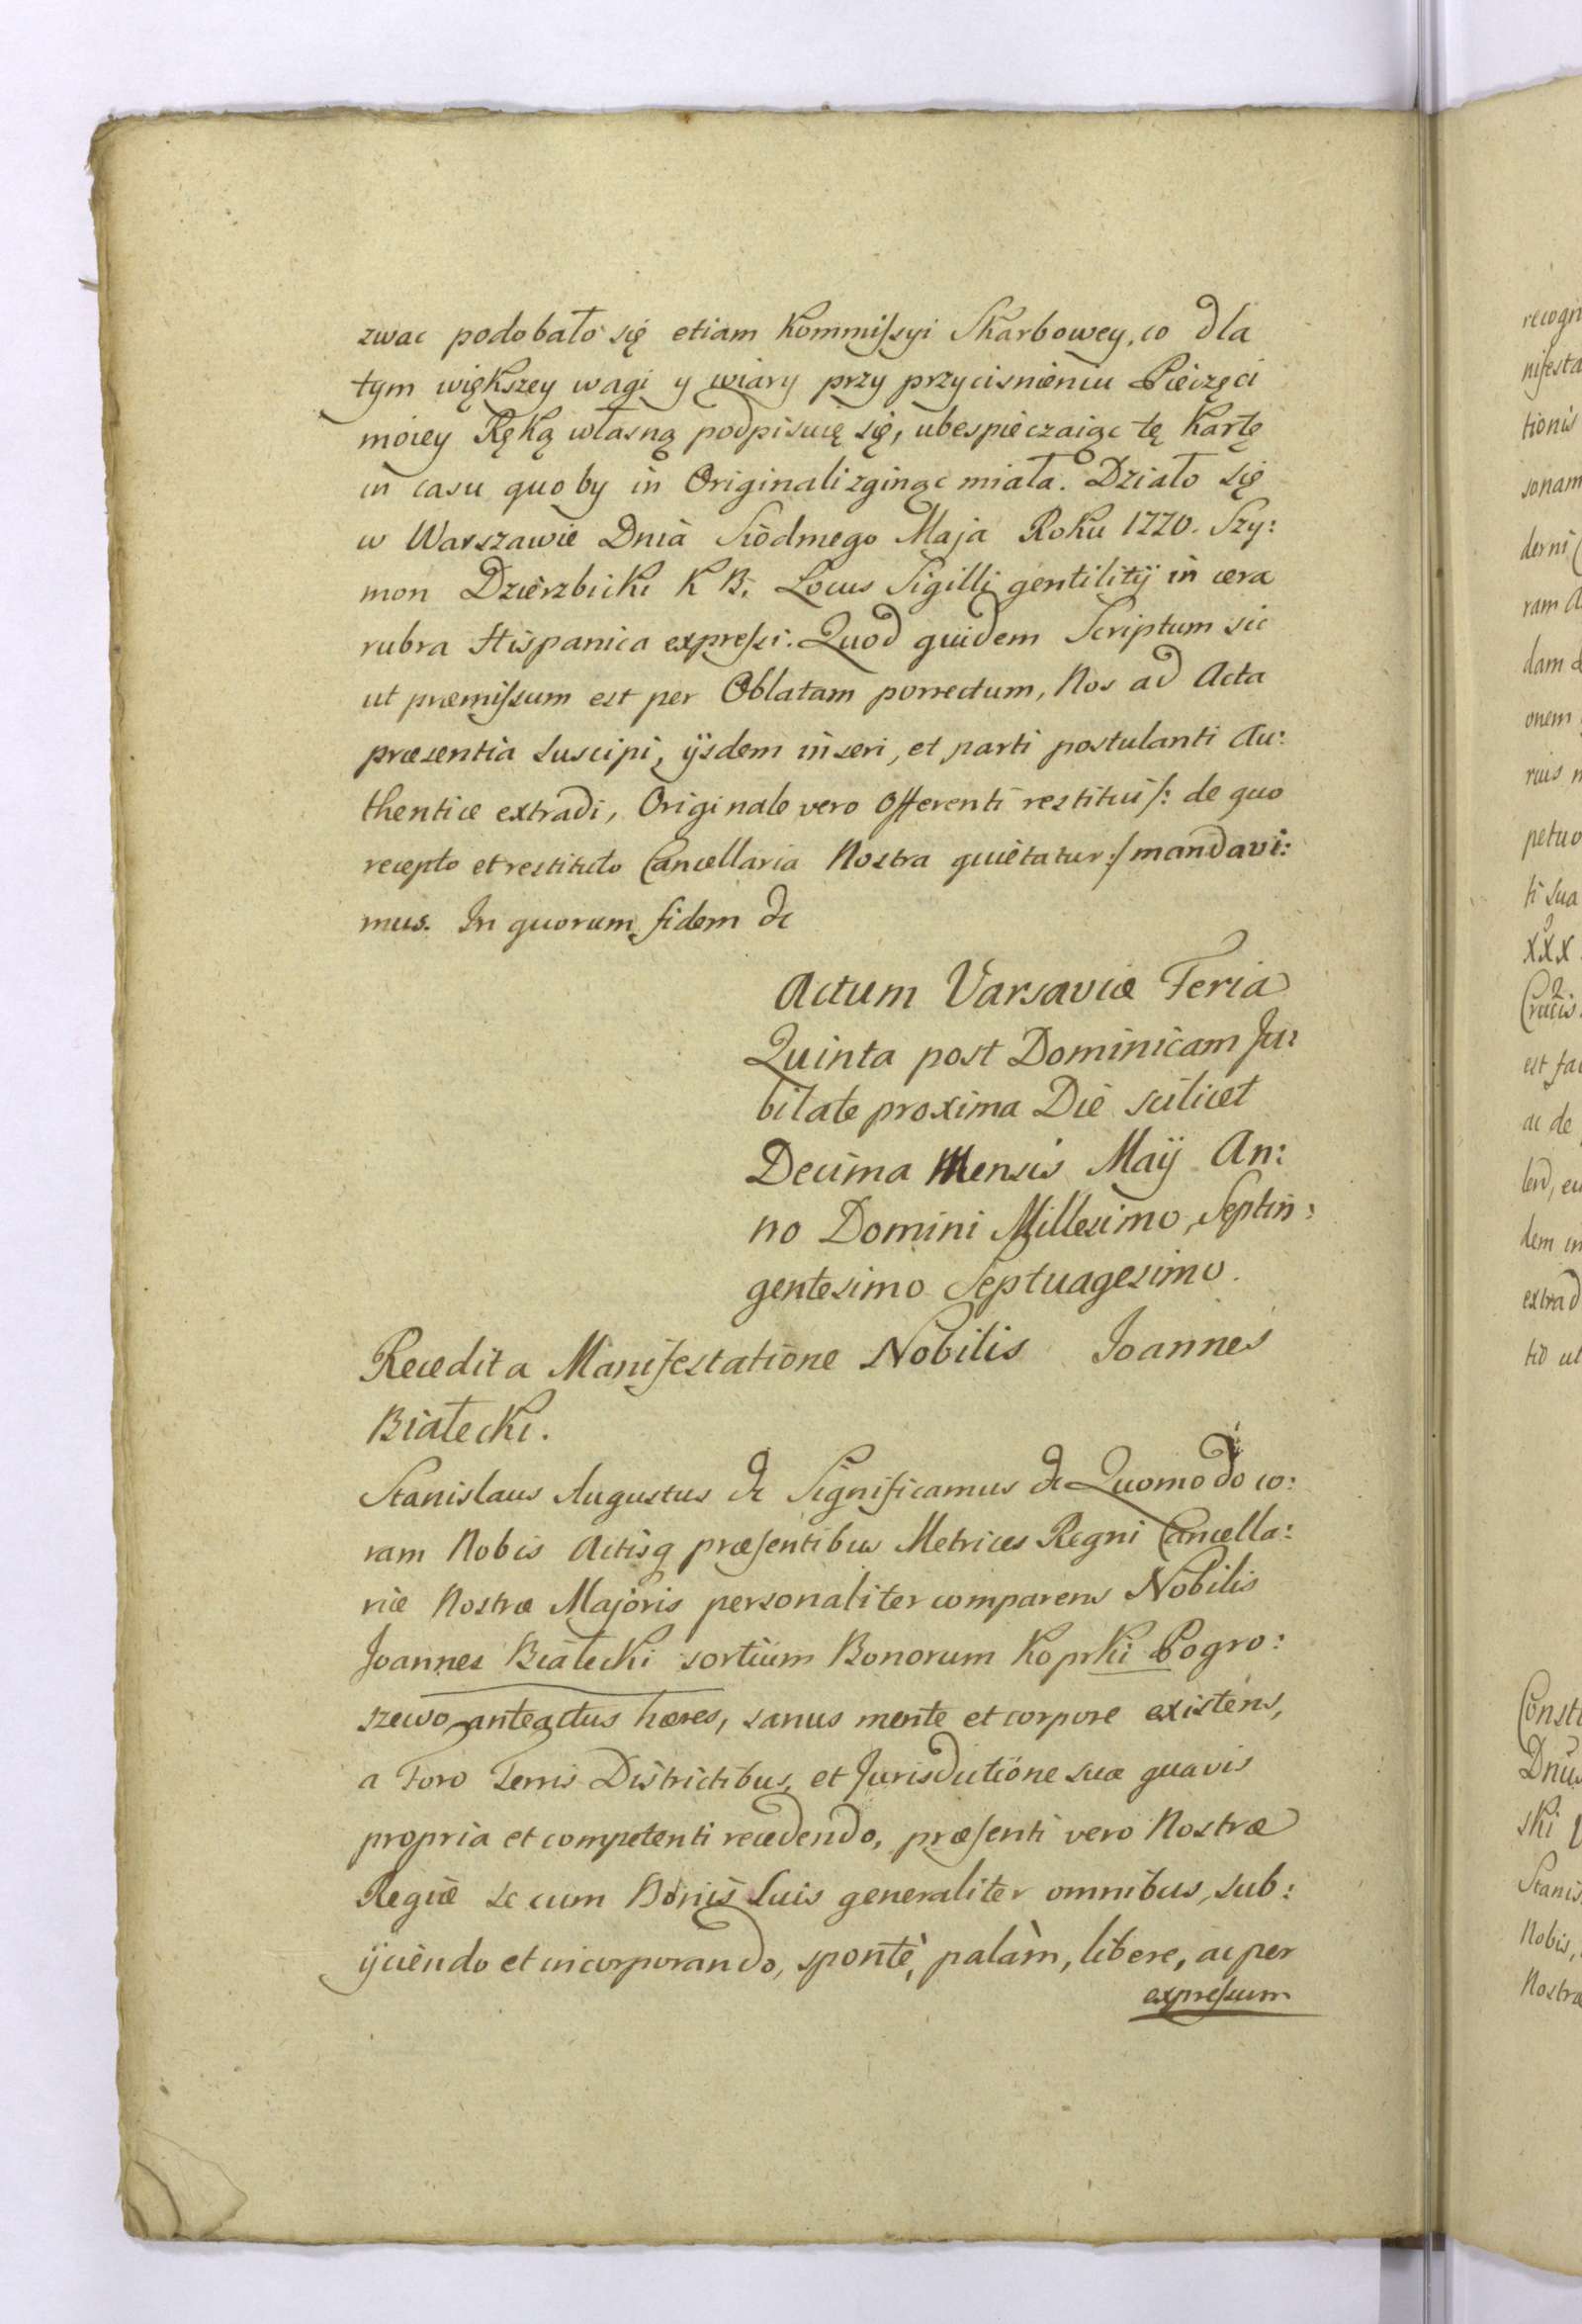 zwac podobało się etiam Kommissyi Skarbowey, co dla
tym większey wagi y wiary przy przycisnieniu Pieczęci
moiey Ręką własną podpisuię się, ubespieczaiąc tę Kartę
in casu quo by in Originali zginąc miała. Działo się
w Warszawie Dnia Siòdmego Maja Roku 1770. Szy:
mon Dzierzbicki K B. Locus Sigilli gentilitij in cera
rubra Hispanica expressi. Quod quidem Scriptum sic
ut præmissum est per Oblatam porrectum, Nos ad Acta
præsentia suscipi, ijsdem inseri, et parti postulanti Au:
thentice extradi, Originale vero Offerenti restitui /: de quo
recepto et restituto Cancellaria Nostra quietatur :/ mandavi:
mus. In quorum fidem &c
Actum Varsaviæ Feria
Quinta post Dominicam Ju:
bilate proxima Die scilicet
Decima Mensis Maij An:
no Domini Millesimo, Septin:
gentesimo Septuagesimo.
Recedit a Manifestatione Nobilis Joannes
Białecki.
Stanislaus Augustus &c Significamus &c Quomodo co:
ram Nobis Actisq præsentibus Metrices Regni Cancella:
riæ Nostræ Majoris personaliter comparens Nobilis
Joannes Białecki sortium Bonorum Koprki Pogro:
szewo anteactus hæres, sanus mente et corpore existens,
a Foro Terris Districtibus, et Jurisdictione sua quavis
propria et competenti recedendo, præsenti vero Nostræ
Regiæ se cum Bonis Suis generaliter omnibus, sub:
ijciendo et incorporando, spontè, palàm, libere, ac per
expressum
recogn
nifesta
tionis
sonam
derni
ram
dam
onem
petuo
ti sua
XXX
Crucis
est
ac de
dem in
extrad
Nobis,
Nostræ